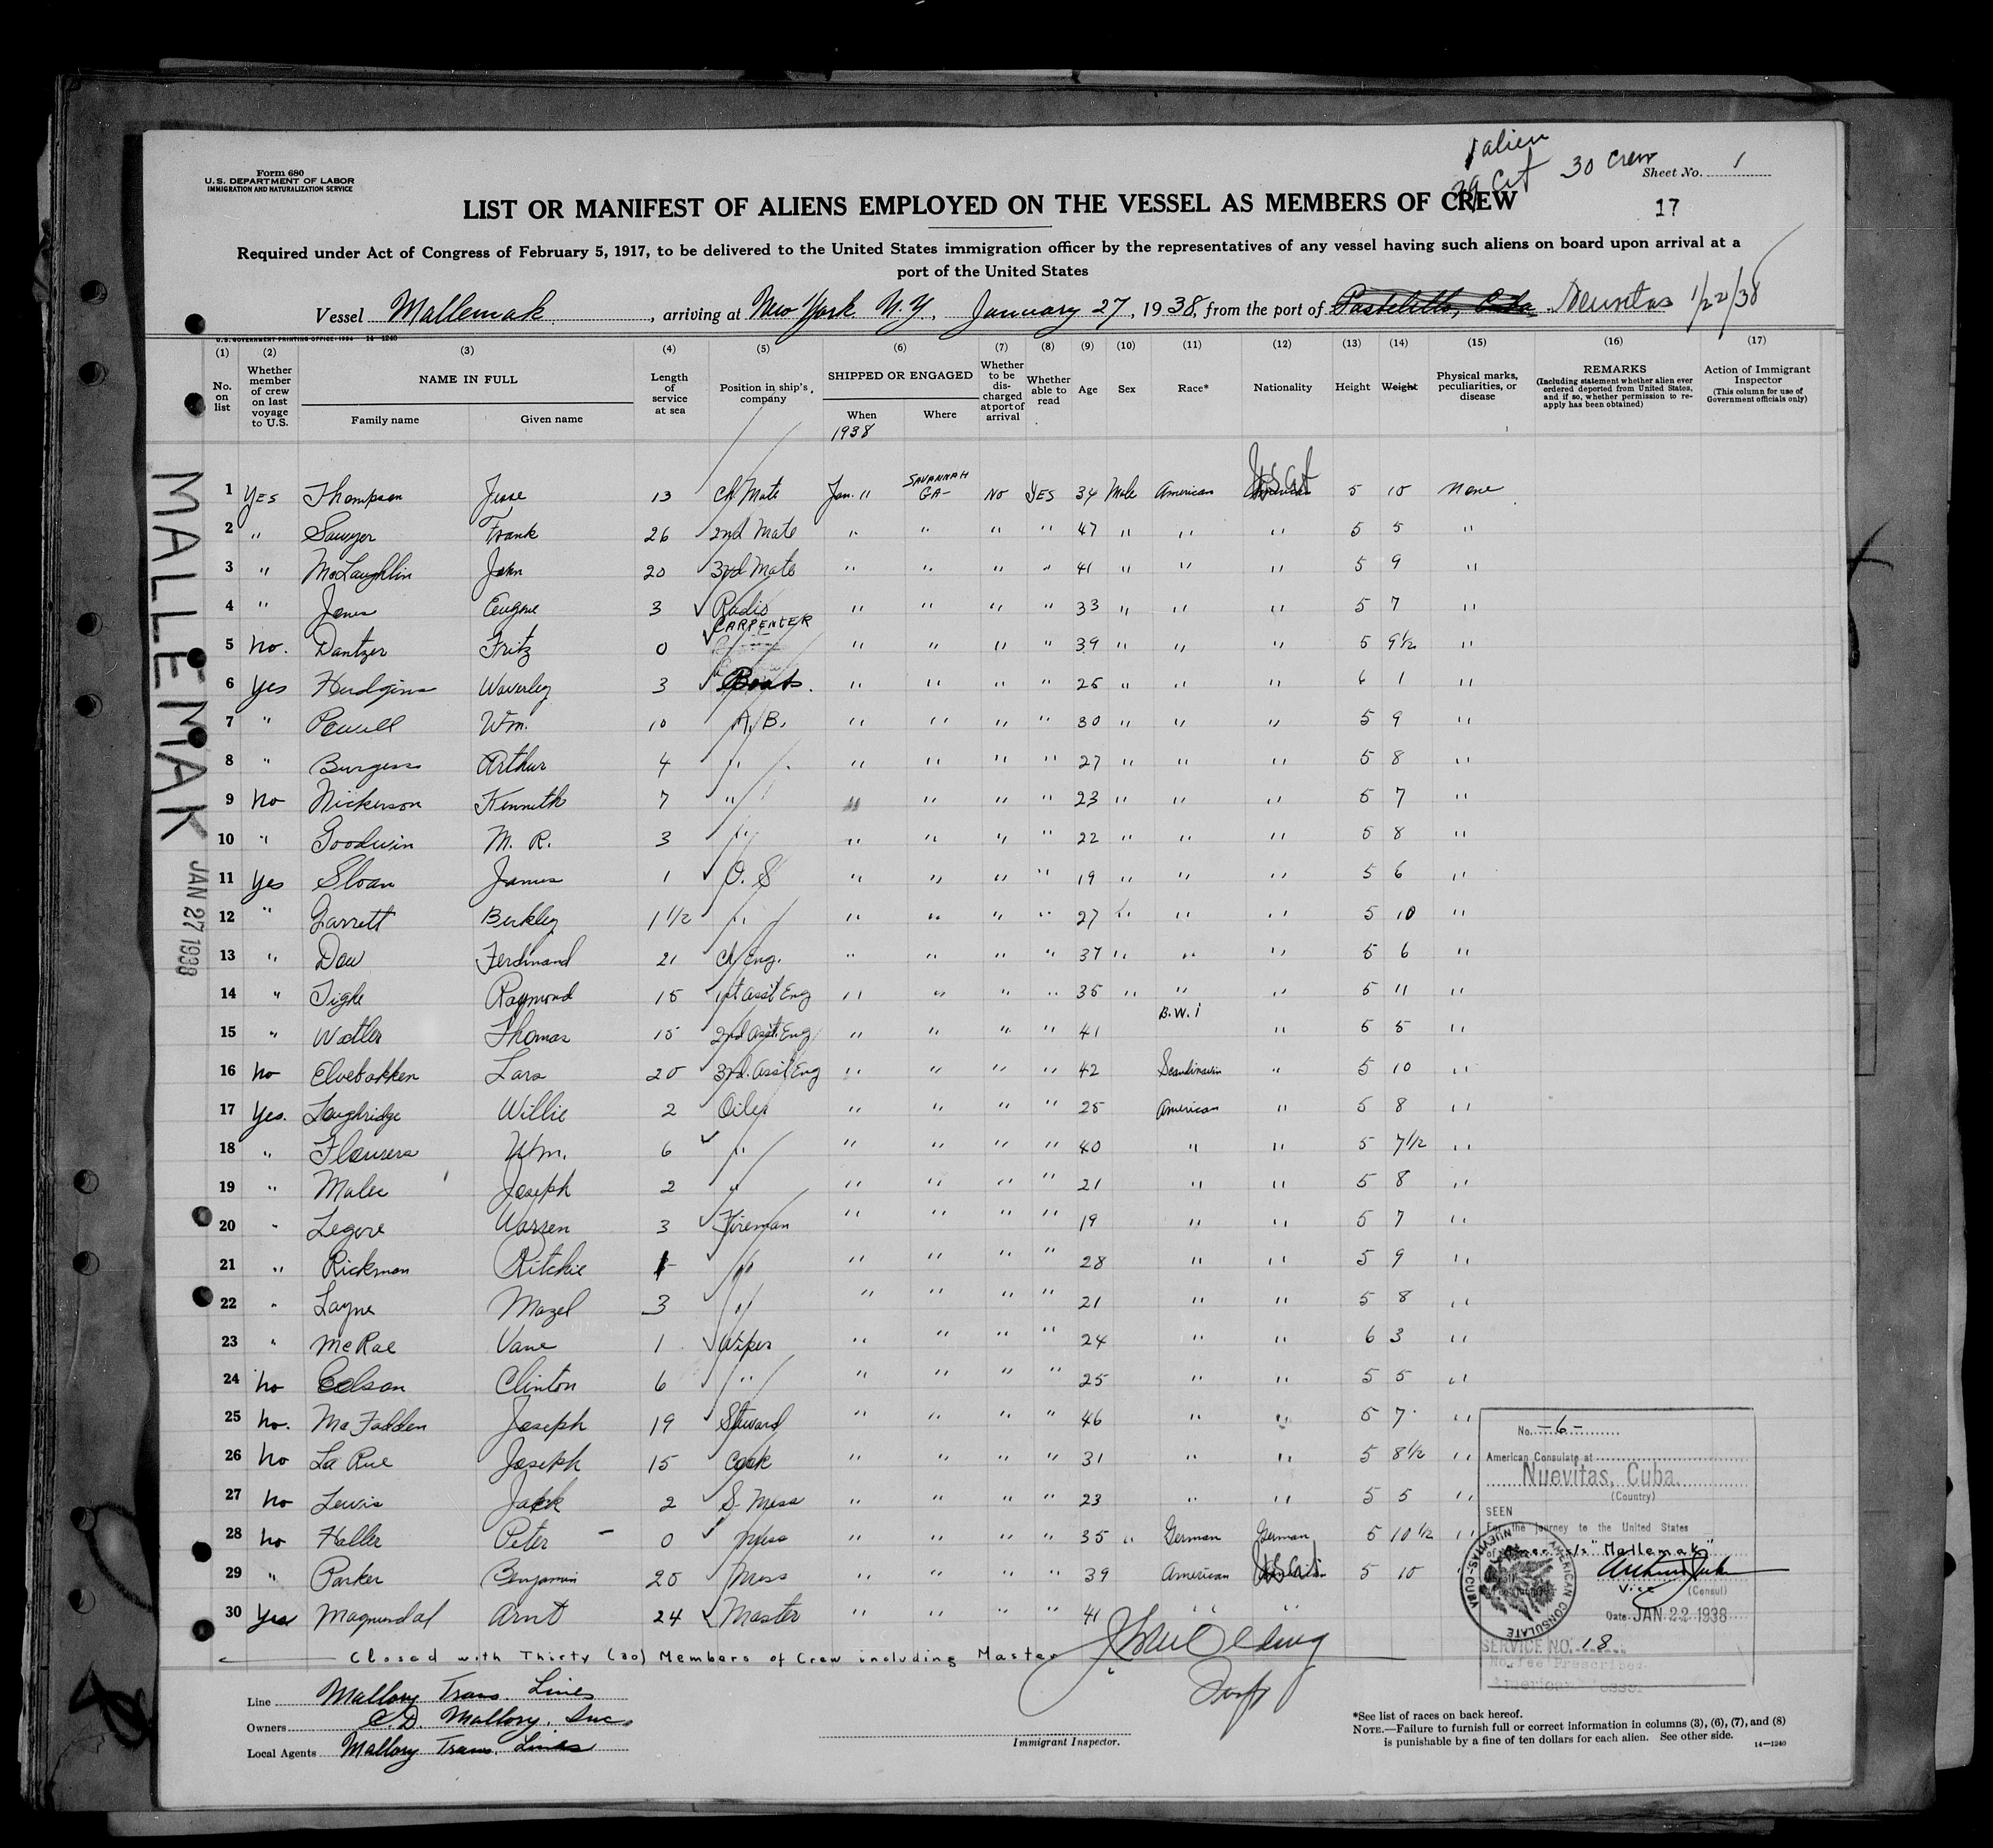 1 alien
29 Cit
30 Crew
Form 680
U.S. DEPARTMENT OF LABOR
IMMIGRATION AND NATURALIZATION SERVICE
Sheet No. 1
LIST OR MANIFEST OF ALIENS EMPLOYED ON THE VESSEL AS MEMBERS OF CREW
17
Required under Act of Congress of February 5, 1917, to be delivered to the United States immigration officer by the representatives of any vessel having such aliens on board upon arrival at a
port of the United States
Vessel Mallemak, arriving at New York N.Y., January 27, 1938, from the port of Pastelillo, Cuba Nuevitas 1/22/38
U.S. GOVERNMENT PRINTING OFFICE: 1934 14—1240
(1) (2) (3) (4) (5) (6) (7) (8) (9) (10) (11) (12) (13) (14) (15) (16) (17)
No. on list
Whether member of crew on last voyage to U.S.
NAME IN FULL
Family name
Given name
Length of service at sea
Position in ship's company
SHIPPED OR ENGAGED
When
1938
Where
Whether to be discharged at port of arrival
Whether able to read
Age
Sex
Race*
Nationality
Height
Weight
Physical marks, peculiarities, or disease
REMARKS
(Including statement whether alien ever ordered deported from United States, and if so, whether permission to reapply has been obtained)
Action of Immigrant Inspector
(This column for use of Government officials only)
1 YES Thompson Jesse 13 Ch Mate Jan. 11 SAVANNAH GA- NO YES 34 Male American U.S. Cit 5 10 None
2 " Sawyer Frank 26 2nd Mate " " " " 47 " " " 5 5 "
3 " McLaughlin John 20 3rd Mate " " " " 41 " " " 5 9 "
4 " Jones Eugene 3 Radio " " " " 33 " " " 5 7 "
5 No. Dantzer Fritz 0 CARPENTER " " " " 39 " " " 5 9 1/2 "
6 Yes Hudgins Waverley 3 Boats. " " " " 25 " " " 6 1 "
7 " Powell Wm. 10 A.B. " " " " 30 " " " 5 9 "
8 " Burgess Arthur 4 " " " " " 27 " " " 5 8 "
9 No Nickerson Kenneth 7 " " " " " 23 " " " 5 7 "
10 " Goodwin M. R. 3 " " " " " 22 " " " 5 8 "
11 Yes Sloan James 1 O. S " " " " 19 " " " 5 6 "
12 " Garrett Berkley 1 1/2 " " " " " 27 " " " 5 10 "
13 " Dow Ferdinand 21 Ch Eng. " " " " 37 " " " 5 6 "
14 " Tighe Raymond 15 1st Ass't Eng " " " " 35 " " " 5 11 "
15 " Watler Thomas 15 2nd Ass't Eng " " " " 41 B.W.I " 5 5 "
16 No Elvebakken Lars 20 3rd Ass't Eng " " " " 42 Scandinavian " 5 10 "
17 Yes. Loughridge Willie 2 Oiler " " " " 25 American " 5 8 "
18 " Flowers Wm. 6 " " " " " 40 " " 5 7 1/2 "
19 " Malec Joseph 2 " " " " " 21 " " 5 8 "
20 " Legere Warren 3 Fireman " " " " 19 " " 5 7 "
21 " Rickman Ritchie 1 " " " " " 28 " " 5 9 "
22 " Layne Mazel 3 " " " " " 21 " " 5 8 "
23 " McRae Vane 1 Wiper " " " " 24 " " 6 3 "
24 No Colson Clinton 6 " " " " " 25 " " 5 5 "
25 No. McFadden Joseph 19 Steward " " " " 46 " " 5 7 "
26 No La Rue Joseph 15 Cook " " " " 31 " " 5 8 1/2 "
27 No Lewis Jack 2 S. Mess " " " " 23 " " 5 5 "
28 No Haller Peter 0 Mess " " " " 35 " German German 5 10 1/2 "
29 " Parker Benjamin 20 Mess " " " " 39 American U.S. Cit 5 10
30 Yes Magnusdal Arnt 24 Master " " " " 41 " "
Closed with Thirty (30) Members of Crew including Master
Line Mallory Trans. Lines
Owners C.D. Mallory, Inc.
Local Agents Mallory Trans. Lines
Immigrant Inspector.
MALLEMAK
JAN 27 1938
No. -6-
American Consulate at
Nuevitas, Cuba.
(Country)
SEEN
For the journey to the United States
of Amer. s/s "Mallemak"
Vice (Consul)
Date JAN 22 1938
AMERICAN CONSULATE
NUEVITAS, CUBA
SERVICE NO. 18
No fee Prescribed
American Vessel
*See list of races on back hereof.
NOTE.—Failure to furnish full or correct information in columns (3), (6), (7), and (8)
is punishable by a fine of ten dollars for each alien. See other side.
14—1240